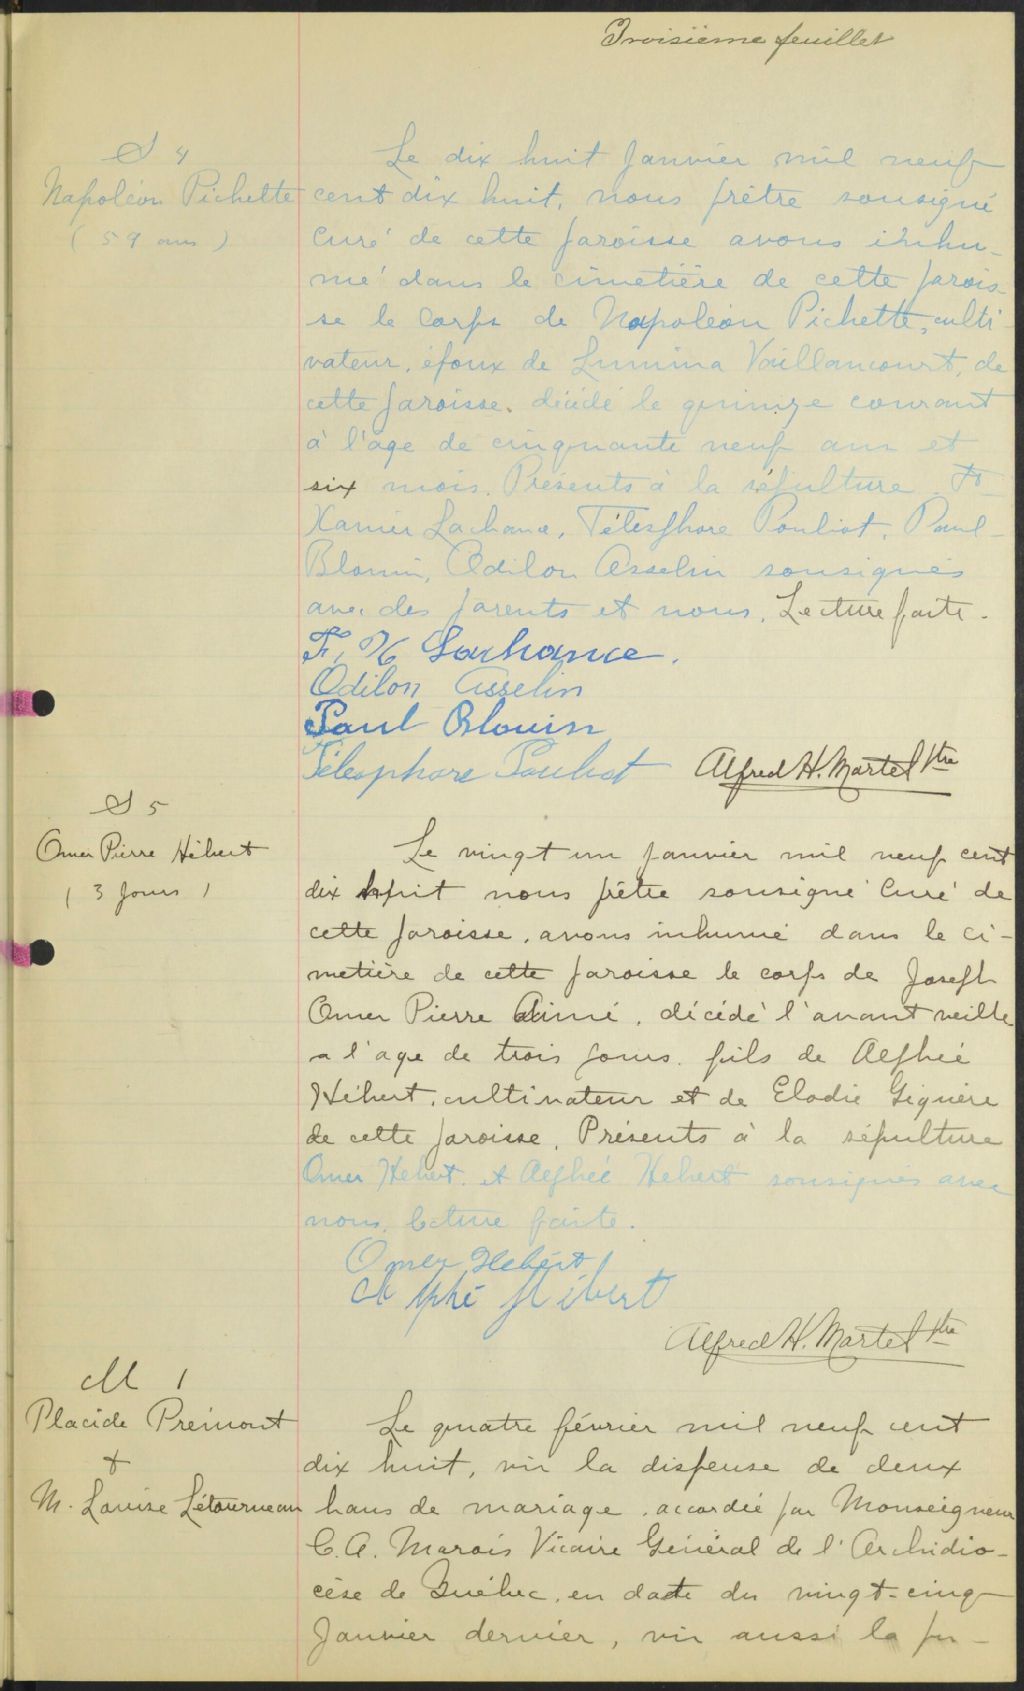 Troisième feuillet
S 4
Napoléon Pichette
( 59 ans )
Le dix huit Janvier mil neuf
cent dix huit, nous prêtre sousigné
Curé de cette paroisse avons inhu-
mé dans le cimetière de cette parois-
se le corps de Napoléon Pichette, culti-
vateur, époux de Lumina Vaillancourt, de
cette paroisse, décédé le quinze courant
à l'âge de cinquante neuf ans et
six mois. Présents à la sépulture Fs
Xavier Lachance, Télesphore Pouliot, Paul
Blouin, Odilon Asselin sousignés
avec des parents et nous. Lecture faite.
F. X Lachance.
Odilon Asselin
Paul Blouin
Télesphore Pouliot Alfred H. Martel Ptre
S 5
Omer Pierre Hébert
( 3 jours )
Le vingt un Janvier mil neuf cent
dix huit nous prêtre sousigné Curé de
cette paroisse, avons inhumé dans le ci-
metière de cette paroisse le corps de Joseph
Omer Pierre Aimé, décédé l'avant veille
a l'age de trois jours, fils de Alphée
Hébert, cultivateur et de Elodie Giguère
de cette paroisse. Présents à la sépulture
Omer Hébert. et Alphée Hebert sousignés avec
nous, lecture faite.
Omer Hebért
Alphé Hébert
Alfred H. Martel Ptre
M 1
Placide Prémont
+
M. Louise Létourneau
Le quatre février mil neuf cent
dix huit, vu la dispense de deux
bans de mariage, accordée par Monseigneur
C. A. Marois Vicaire Général de l'Archidio-
cèse de Québec, en date du vingt-cinq
Janvier dernier, vu aussi la pu-